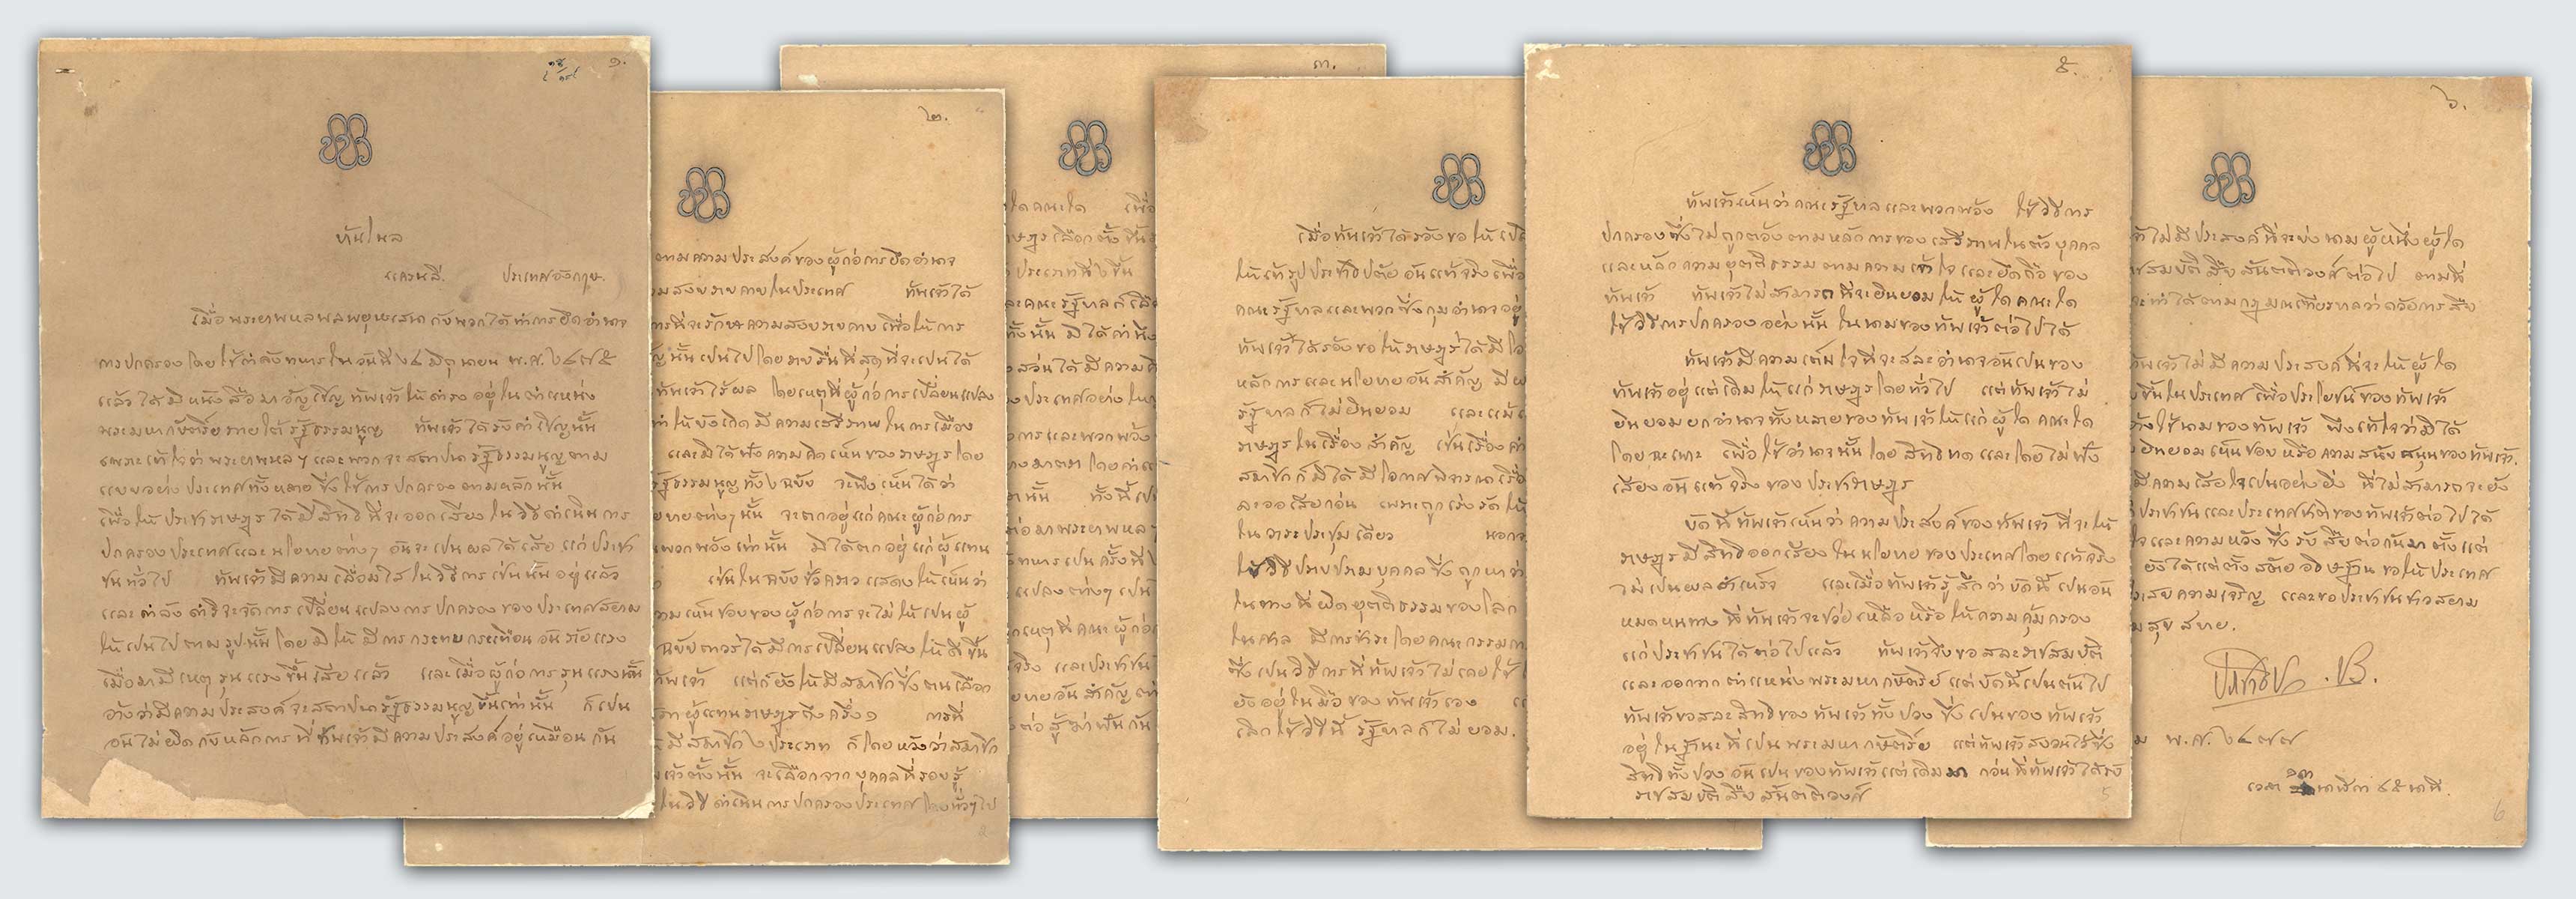 ๑.
บ้านโนล
แครนลี. ประเทศอังกฤษ.
เมื่อพระยาพหลพลพยุหเสนากับพวกได้ทำการยึดอำนาจ
การปกครองโดยใช้กำลังทหารในวันที่ ๒๔ มิถุนายน พ.ศ. ๒๔๗๕
แล้วได้มีหนังสือมาอัญเชิญข้าพเจ้าให้ดำรงอยู่ในตำแหน่ง
พระมหากษัตริย์ภายใต้รัฐธรรมนูญ ข้าพเจ้าได้รับคำเชิญนั้น
เพราะเข้าใจว่าพระยาพหลฯ และพวกจะสถาปนารัฐธรรมนูญตาม
แบบอย่างประเทศทั้งหลายซึ่งใช้การปกครองตามหลักนั้น
เพื่อให้ประชาราษฎรได้มีสิทธิที่จะออกเสียงในวิธีดำเนินการ
ปกครองประเทศและนโยบายต่างๆ อันจะเป็นผลได้เสียแก่ประชา
ชนทั่วไป ข้าพเจ้ามีความเลื่อมใสในวิธีการเช่นนั้นอยู่แล้ว
และกำลังดำริจะจัดการเปลี่ยนแปลงการปกครองของประเทศสยาม
ให้เป็นไปตามรูปนั้นโดยมิให้มีการกระทบกระเทือนอันร้ายแรง
เมื่อมามีเหตุรุนแรงขึ้นเสียแล้ว และเมื่อผู้ก่อการรุนแรงนั้น
อ้างว่ามีความประสงค์จะสถาปนารัฐธรรมนูญขึ้นเท่านั้น ก็เป็น
อันไม่ผิดกับหลักการที่ข้าพเจ้ามีความประสงค์อยู่เหมือนกัน
๒.
ตามความประสงค์ของผู้ก่อการยึดอำนาจ
มสงบราบคาบในประเทศ ข้าพเจ้าได้
การที่จะรักษาความสงบราบคาบเพื่อให้การ
ญนั้นเป็นไปโดยราบรื่นที่สุดที่จะเป็นได้
ข้าพเจ้าไร้ผล โดยเหตุที่ผู้ก่อการเปลี่ยนแปลง
ทำให้บังเกิดมีความเสรีภาพในการเมือง
และมิได้ฟังความคิดเห็นของราษฎรโดย
รัฐธรรมนูญทั้ง ๒ ฉบับ จะพึงเห็นได้ว่า
ยบายต่างๆ นั้น จะตกอยู่แก่คณะผู้ก่อการ
พวกพ้องเท่านั้น มิได้ตกอยู่แก่ผู้แทน
เช่นในฉบับชั่วคราว แสดงให้เห็นว่า
ามเห็นชอบของผู้ก่อการจะไม่ให้เป็นผู้
ฉบับถาวรได้มีการเปลี่ยนแปลงให้ดีขึ้น
ข้าพเจ้า แต่ก็ยังให้มีสมาชิกซึ่งตนเลือก
ภาผู้แทนราษฎรถึงครึ่ง ๑ การที่
มีสมาชิก ๒ ประเภท ก็โดยหวังว่าสมาชิก
เจ้าตั้งนั้น จะเลือกจากบุคคลที่รอบรู้
ในวิธีดำเนินการปกครองประเทศโดยทั่วๆ ไป
๓.
ใดคณะใด เพื่อ
าษฎรเลือกตั้งขึ้น
ประเภทที่ ๒ ขึ้น
ละคณะรัฐบาลก็เลือ
ทั้งนั้น มิได้คำนึง
สวนได้มีความคิ
งประเทศอย่างใหญ
การและพวกพ้อง
างมาตรา โดยคำแ
นั้น ทั้งนี้เป
ต่อมาพระยาพหลฯ
ทหารเป็นครั้งที่ ๒
แปลงต่างๆ เป็น
ากเหตุที่คณะผู้ก่อ
จริง และประชาชน
ยบายอันสำคัญต่า
งต่อสู้ฆ่าฟันกัน
เมื่อข้าพเจ้าได้ร้องขอให้เปลี
ให้เข้ารูปประชาธิปตัยอันแท้จริงเพื่อ
คณะรัฐบาลและพวกซึ่งกุมอำนาจอยู่
ข้าพเจ้าได้ร้องขอให้ราษฎรได้มีโอ
หลักการและนโยบายอันสำคัญ มีผ
รัฐบาลก็ไม่ยินยอม และแม้
ราษฎรในเรื่องสำคัญ เช่นเรื่องคำ
สมาชิกก็มิได้มีโอกาสพิจารณาเรื่อ
ละออเสียก่อน เพราะถูกเร่งรัดให้
ในวาระประชุมเดียว นอกจ
ใช้วิธีปราบปรามบุคคลซึ่งถูกหาว่า
ในทางที่ผิดยุตติธรรมของโลก
ในศาล มีการชำระโดยคณะกรรมก
ซึ่งเป็นวิธีการที่ข้าพเจ้าไม่เคยใช้ใ
ยังอยู่ในมือของข้าพเจ้าเอง
เลิกใช้วิธีนี้ รัฐบาลก็ไม่ยอม.
๕.
ข้าพเจ้าเห็นว่าคณะรัฐบาลและพวกพ้อง ใช้วิธีการ
ปกครองซึ่งไม่ถูกต้องตามหลักการของเสรีภาพในตัวบุคคล
และหลักความยุตติธรรมตามความเข้าใจและยึดถือของ
ข้าพเจ้า ข้าพเจ้าไม่สามารถที่จะยินยอมให้ผู้ใดคณะใด
ใช้วิธีการปกครองอย่างนั้นในนามของข้าพเจ้าต่อไปได้
ข้าพเจ้ามีความเต็มใจที่จะสละอำนาจอันเป็นของ
ข้าพเจ้าอยู่แต่เดิมให้แก่ราษฎรโดยทั่วไป แต่ข้าพเจ้าไม่
ยินยอมยกอำนาจทั้งหลายของข้าพเจ้าให้แก่ผู้ใดคณะใด
โดยฉะเพาะ เพื่อใช้อำนาจนั้นโดยสิทธิขาดและโดยไม่ฟัง
เสียงอันแท้จริงของประชาราษฎร
บัดนี้ข้าพเจ้าเห็นว่าความประสงค์ของข้าพเจ้าที่จะให้
ราษฎรมีสิทธิออกเสียงในนโยบายของประเทศโดยแท้จริง
ไม่เป็นผลสำเหร็จ และเมื่อข้าพเจ้ารู้สึกว่าบัดนี้เป็นอัน
หมดหนทางที่ข้าพเจ้าจะช่วยเหลือหรือให้ความคุ้มครอง
แก่ประชาชนได้ต่อไปแล้ว ข้าพเจ้าจึงขอสละราชสมบัติ
และออกจากตำแหน่งพระมหากษัตริย์แต่บัดนี้เป็นต้นไป
ข้าพเจ้าขอสละสิทธิของข้าพเจ้าทั้งปวงซึ่งเป็นของข้าพเจ้า
อยู่ในฐานะที่เป็นพระมหากษัตริย์ แต่ข้าพเจ้าสงวนไว้ซึ่ง
สิทธิทั้งปวงอันเป็นของข้าพเจ้าแต่เดิมมา ก่อนที่ข้าพเจ้าได้รับ
ราชสมบัติสืบสันตติวงศ์
5
๖.
จ้าไม่มีประสงค์ที่จะบ่งนามผู้หนึ่งผู้ใด
าชสมบัติสืบสันตติวงศ์ต่อไป ตามที่
จะทำได้ตามกฎมณเฑียรบาลว่าด้วยการสืบ
ข้าพเจ้าไม่มีความประสงค์ที่จะให้ผู้ใด
บขึ้นในประเทศเพื่อประโยชน์ของข้าพเจ้า
อ้างใช้นามของข้าพเจ้า พึงเข้าใจว่ามิได้
ยินยอมเห็นชอบหรือความสนับสนุนของข้าพเจ้า.
มีความเสียใจเป็นอย่างยิ่ง ที่ไม่สามารถจะยัง
ประชาชนและประเทศชาติของข้าพเจ้าต่อไปได้
จและความหวังซึ่งรับสืบต่อกันมาตั้งแต่
ยังได้แต่ตั้งสัตยอธิษฐานขอให้ประเทศ
ระสบความเจริญ และขอประชาชนชาวสยาม
มสุขสบาย.
ประชาธิปก. ปร.
ม พ.ศ. ๒๔๗๗
เวลา ๑๓ นาฬิกา ๔๕ นาที.
6